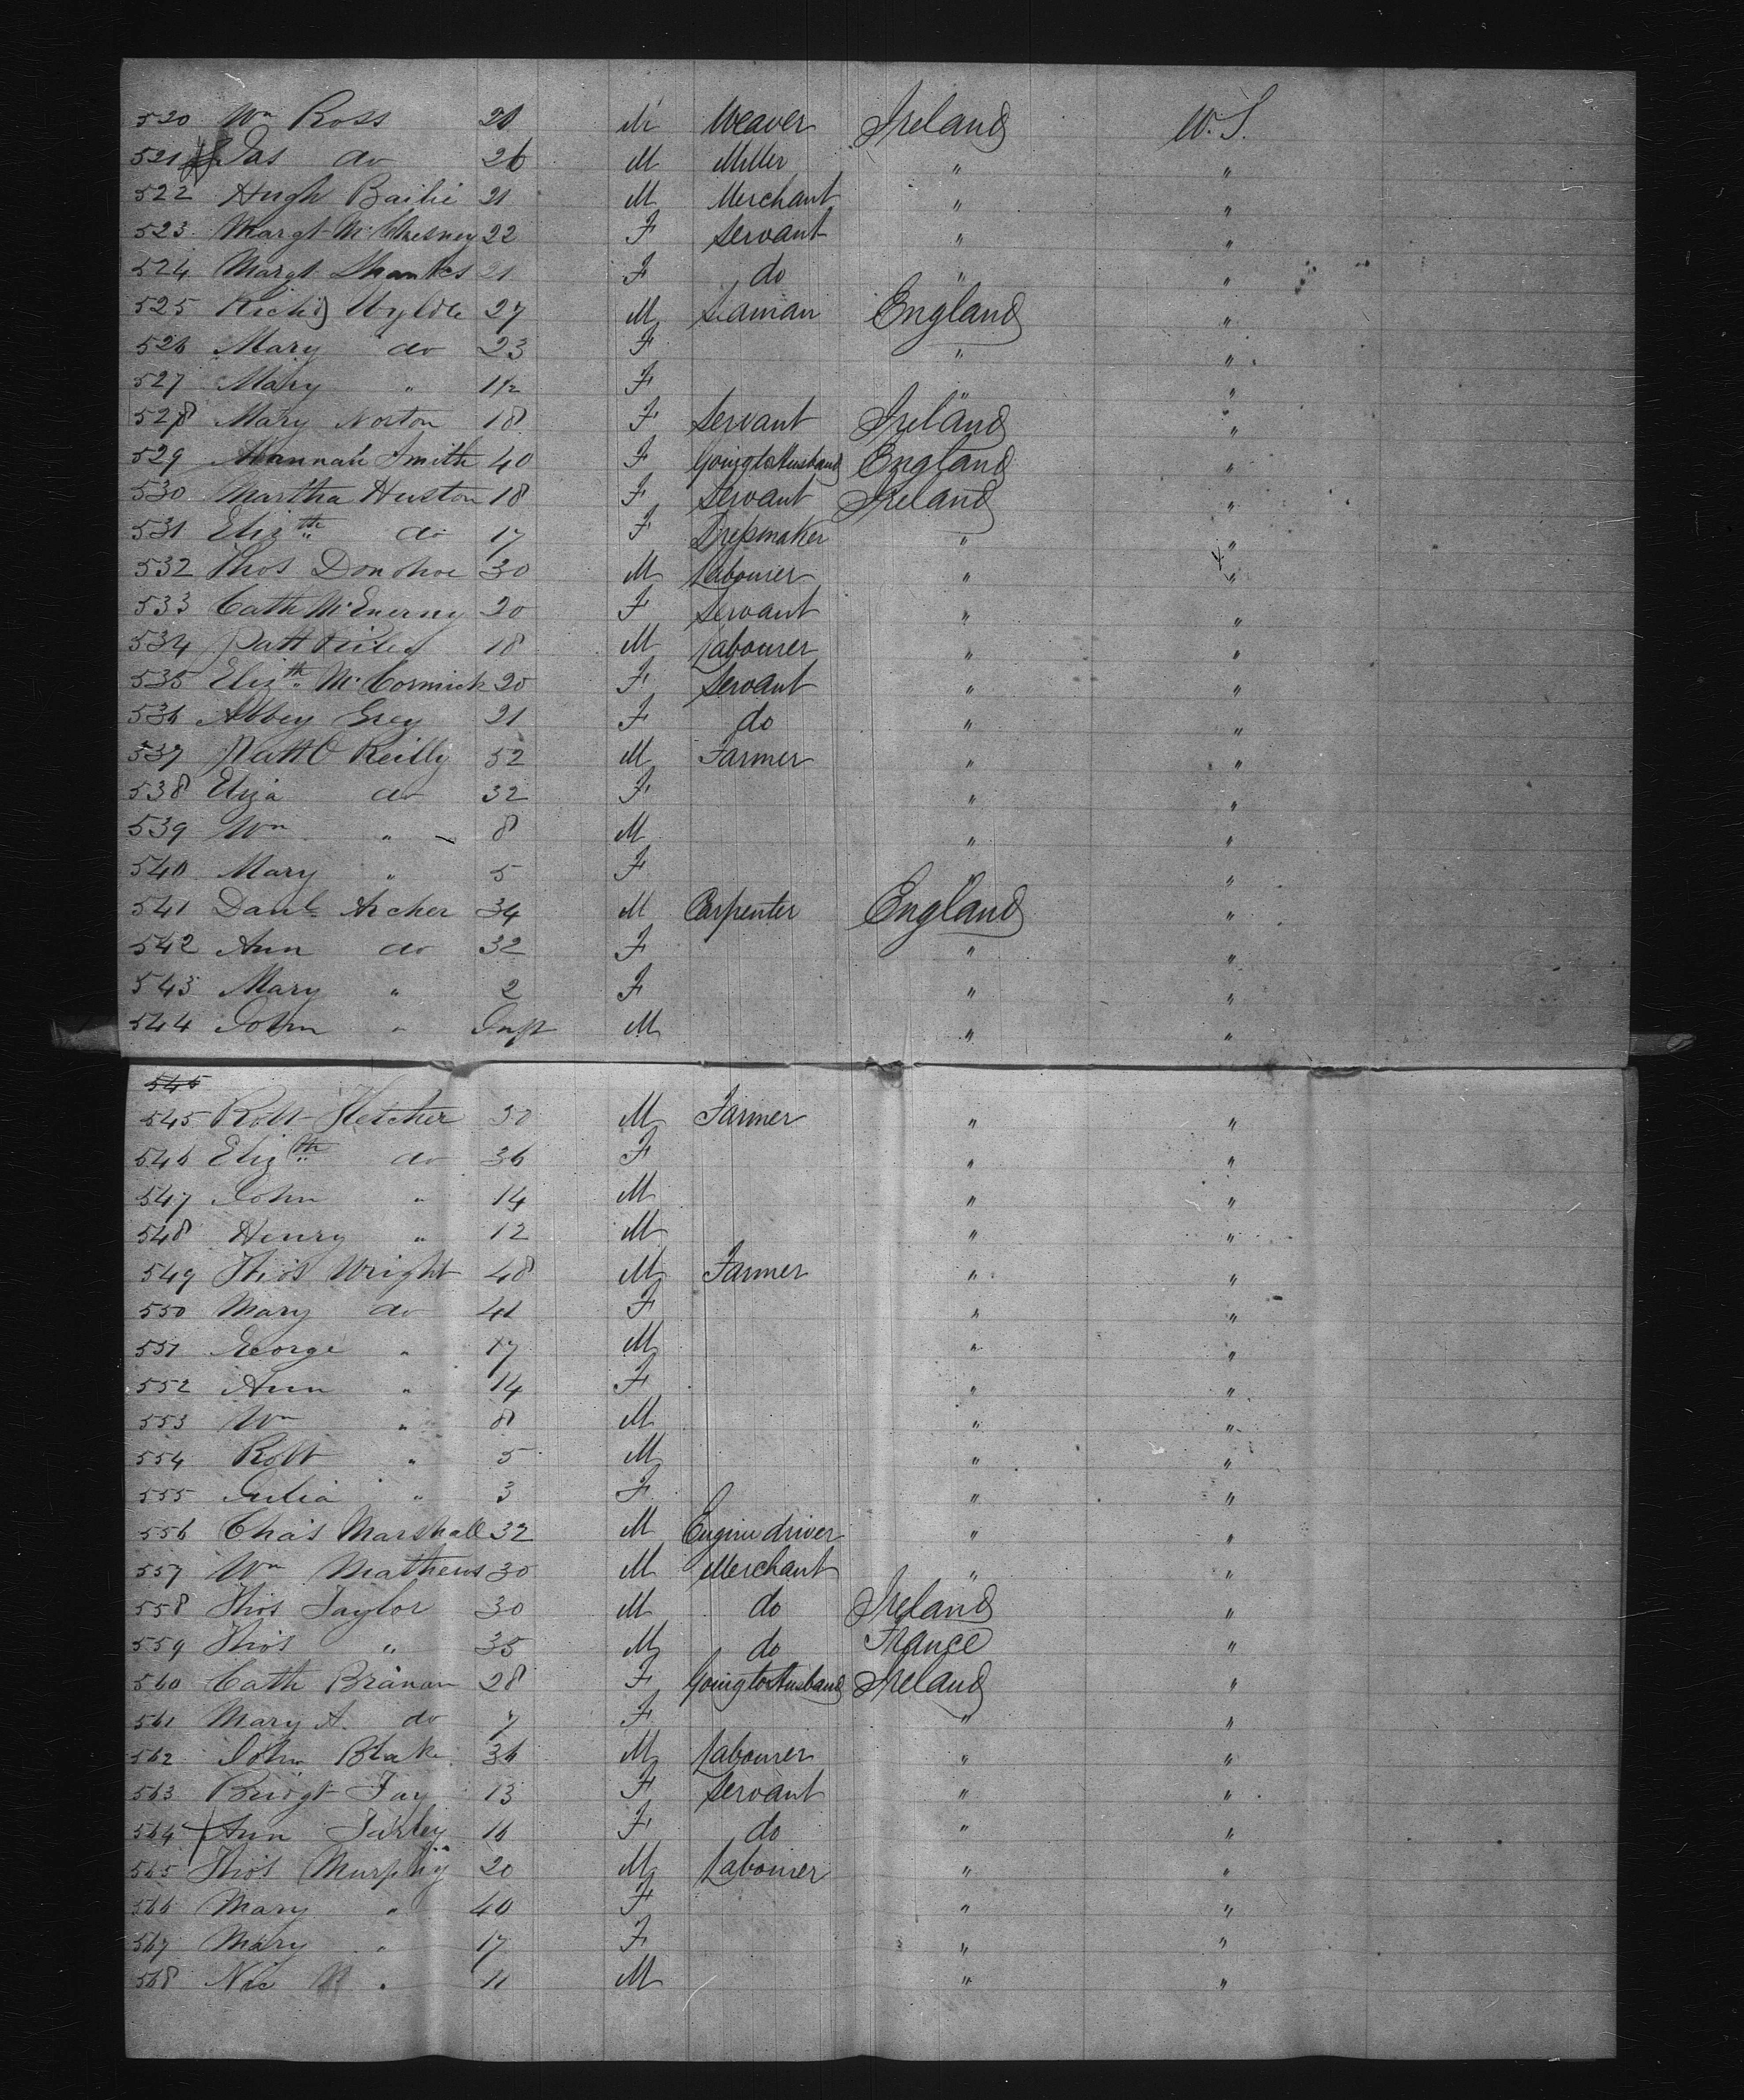 520 Wm Ross 21 M Weaver Ireland W.S.
521 Jas do 26 M Miller " "
522 Hugh Bailie 21 M Merchant " "
523 Margt McChesney 22 F Servant " "
524 Margt Shanks 21 F do " "
525 Richd Wylde 27 M Seaman England "
526 Mary do 23 F " "
527 Mary " 1½ F " "
528 Mary Norton 18 F Servant Ireland "
529 Hannah Smith 40 F Going to Husband England "
530 Martha Huston 18 F Servant Ireland "
531 Elizth do 17 F Dressmaker " "
532 Thos Donohoe 30 M Labourer " "
533 Cath McEnerny 20 F Servant " "
534 Patt 18 M Labourer " "
535 Elizth McCormick 20 F Servant " "
536 Abbey Grey 21 F do " "
537 Patt O Reilly 52 M Farmer " "
538 Eliza do 32 F " "
539 Wm " 8 M " "
540 Mary " 5 F " "
541 Danl Archer 34 M Carpenter England "
542 Ann do 32 F " "
543 Mary " 2 F " "
544 John " Inft M " "
545
545 Robt Fletcher 30 M Farmer " "
546 Elizth do 36 F " "
547 John " 14 M " "
548 Henry " 12 M " "
549 Thos Wright 48 M Farmer " "
550 Mary do 41 F " "
551 George " 17 M " "
552 Ann " 14 F " "
553 Wm " 8 M " "
554 Robt " 5 M " "
555 Julia " 3 F " "
556 Chas Marshall 32 M Engine driver " "
557 Wm Mathews 30 M Merchant " "
558 Thos Taylor 30 M do Ireland "
559 Thos " 35 M do France "
560 Cath Branan 28 F Going to Husband Ireland "
561 Mary A. do 7 F " "
562 John Blake 36 M Labourer " "
563 Bridgt Fay 13 F Servant " "
564 Ann Farley 16 F do " "
565 Thos Murphy 20 M Labourer " "
566 Mary " 40 F " "
567 Mary " 17 F " "
568 " 11 M " "